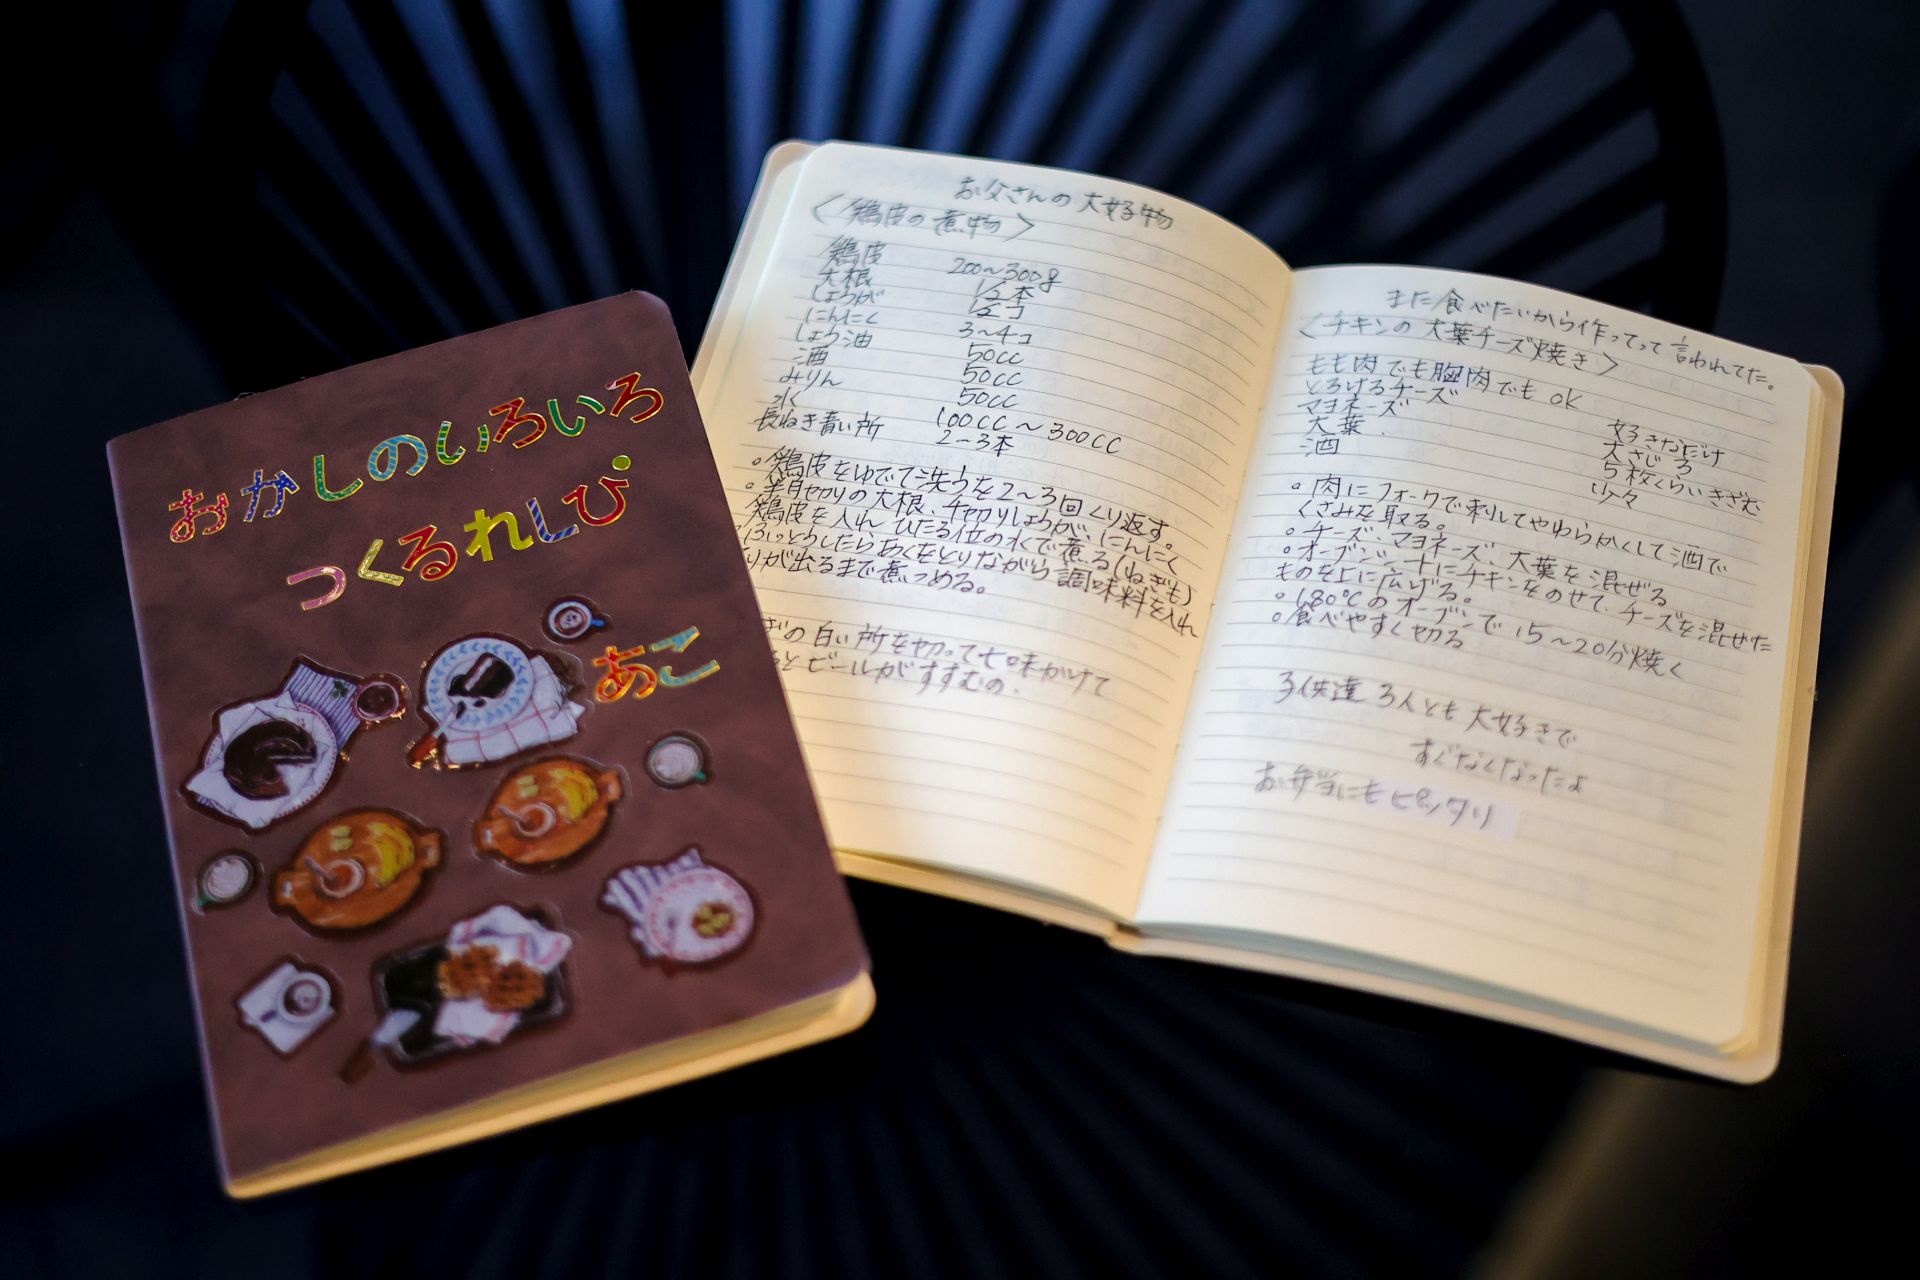 おかしのいろいろ
つくるれしぴ
あこ
お父さんの大好物
〈鶏皮の煮物〉
鶏皮 200〜300g
大根 1/2本
しょうが 1/2コ
にんにく 3〜4コ
しょう油 50cc
酒 50cc
みりん 50cc
水 100cc〜300cc
長ねぎ青い所 2〜3本
○鶏皮をゆでて洗うを2〜3回くり返す。
○半月切りの大根、千切りしょうが、にんにく
鶏皮を入れ ひたる位の水で煮る(ねぎも)
ふっとうしたらあくをとりながら調味料を入れ
りが出るまで煮つめる。
ぎの白い所を切って七味かけて
とビールがすすむの.
また食べたいから作ってって言われてた。
〈チキンの大葉チーズ焼き〉
もも肉でも胸肉でもOK
とろけるチーズ 好きなだけ
マヨネーズ 大さじ3
大葉 5枚くらいきざむ
酒 少々
○肉にフォークで刺してやわらかくして酒で
くさみを取る。
○チーズ、マヨネーズ、大葉を混ぜる
○オーブンシートにチキンをのせて、チーズを混ぜた
ものを上に広げる。
○180℃のオーブンで15〜20分焼く
○食べやすく切る
子供達3人とも大好きで
すぐなくなったよ
お弁当にもピッタリ